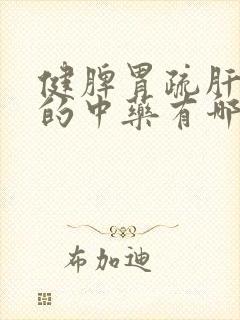 健脾胃疏肝
的中药有哪
布加迪